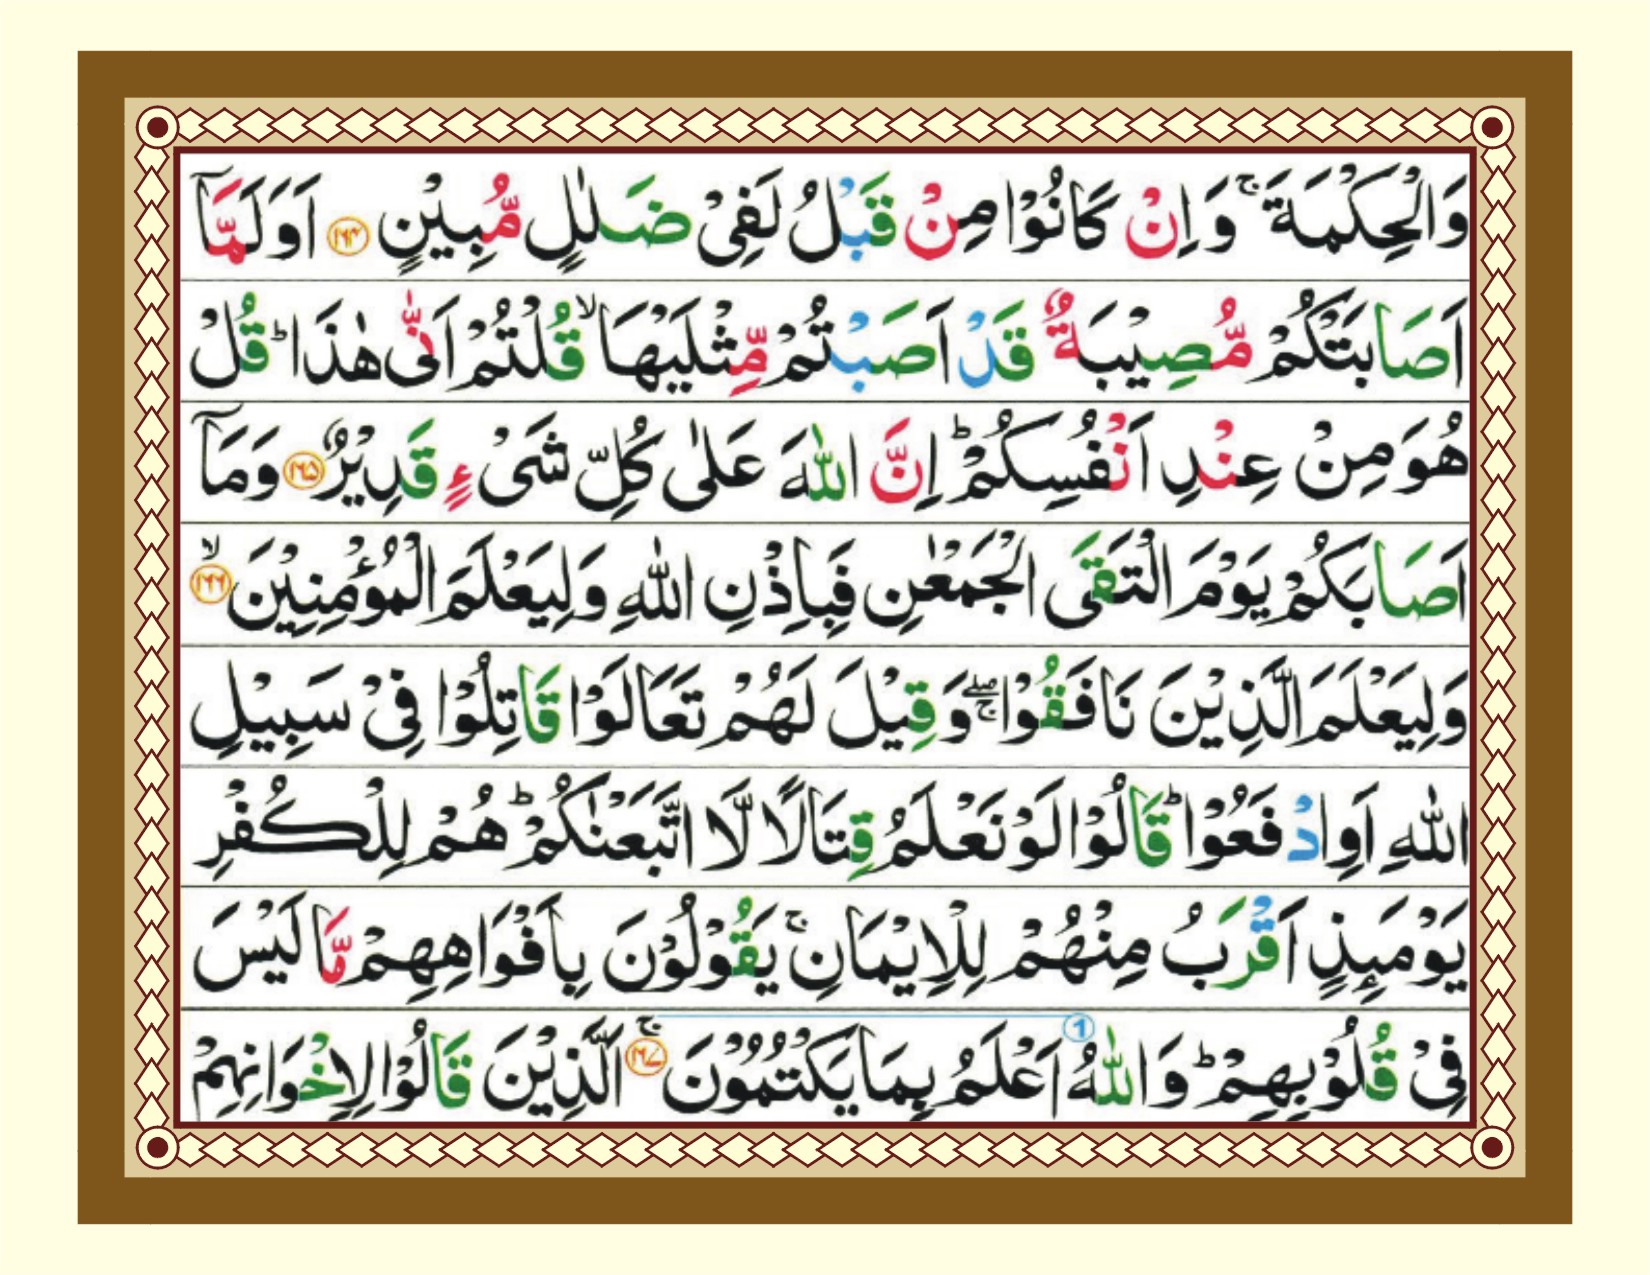 وَالْحِكْمَةَ ۚ وَاِنْ كَانُوْا مِنْ قَبْلُ لَفِىْ ضَلٰلٍ مُّبِيْنٍ ۝۱۶۴ اَوَلَمَّاۤ
اَصَابَتْكُمْ مُّصِيْبَةٌ قَدْ اَصَبْتُمْ مِّثْلَيْهَا ۙ قُلْتُمْ اَنّٰى هٰذَا ؕ قُلْ
هُوَ مِنْ عِنْدِ اَنْفُسِكُمْ ؕ اِنَّ اللّٰهَ عَلٰى كُلِّ شَىْءٍ قَدِيْرٌ ۝۱۶۵ وَمَاۤ
اَصَابَكُمْ يَوْمَ الْتَقَى الْجَمْعٰنِ فَبِاِذْنِ اللّٰهِ وَلِيَعْلَمَ الْمُؤْمِنِيْنَ ۙ ۝۱۶۶
وَلِيَعْلَمَ الَّذِيْنَ نَافَقُوْا ۖۚ وَقِيْلَ لَهُمْ تَعَالَوْا قَاتِلُوْا فِىْ سَبِيْلِ
اللّٰهِ اَوِادْفَعُوْا ؕ قَالُوْا لَوْ نَعْلَمُ قِتَالًا لَّا اتَّبَعْنٰكُمْ ؕ هُمْ لِلْكُفْرِ
يَوْمَىِٕذٍ اَقْرَبُ مِنْهُمْ لِلْاِيْمَانِ ۚ يَقُوْلُوْنَ بِاَفْوَاهِهِمْ مَّا لَيْسَ
فِىْ قُلُوْبِهِمْ ؕ وَاللّٰهُ ① اَعْلَمُ بِمَا يَكْتُمُوْنَ ۚ ۝۱۶۷ اَلَّذِيْنَ قَالُوْا لِاِخْوَانِهِمْ